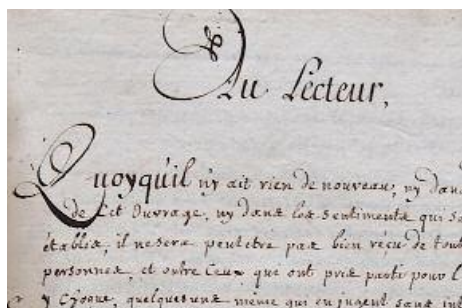 Au Lecteur,
Quoyqu'il n'y ait rien de nouveau, ny dans
de Cet Ouvrage, ny dans les sentiments qui so
établis, il ne sera peutetre pas bien reçu de tout
personnes, et outre Ceux que ont pris parti pour l
quelques uns meme qui en jugent sans